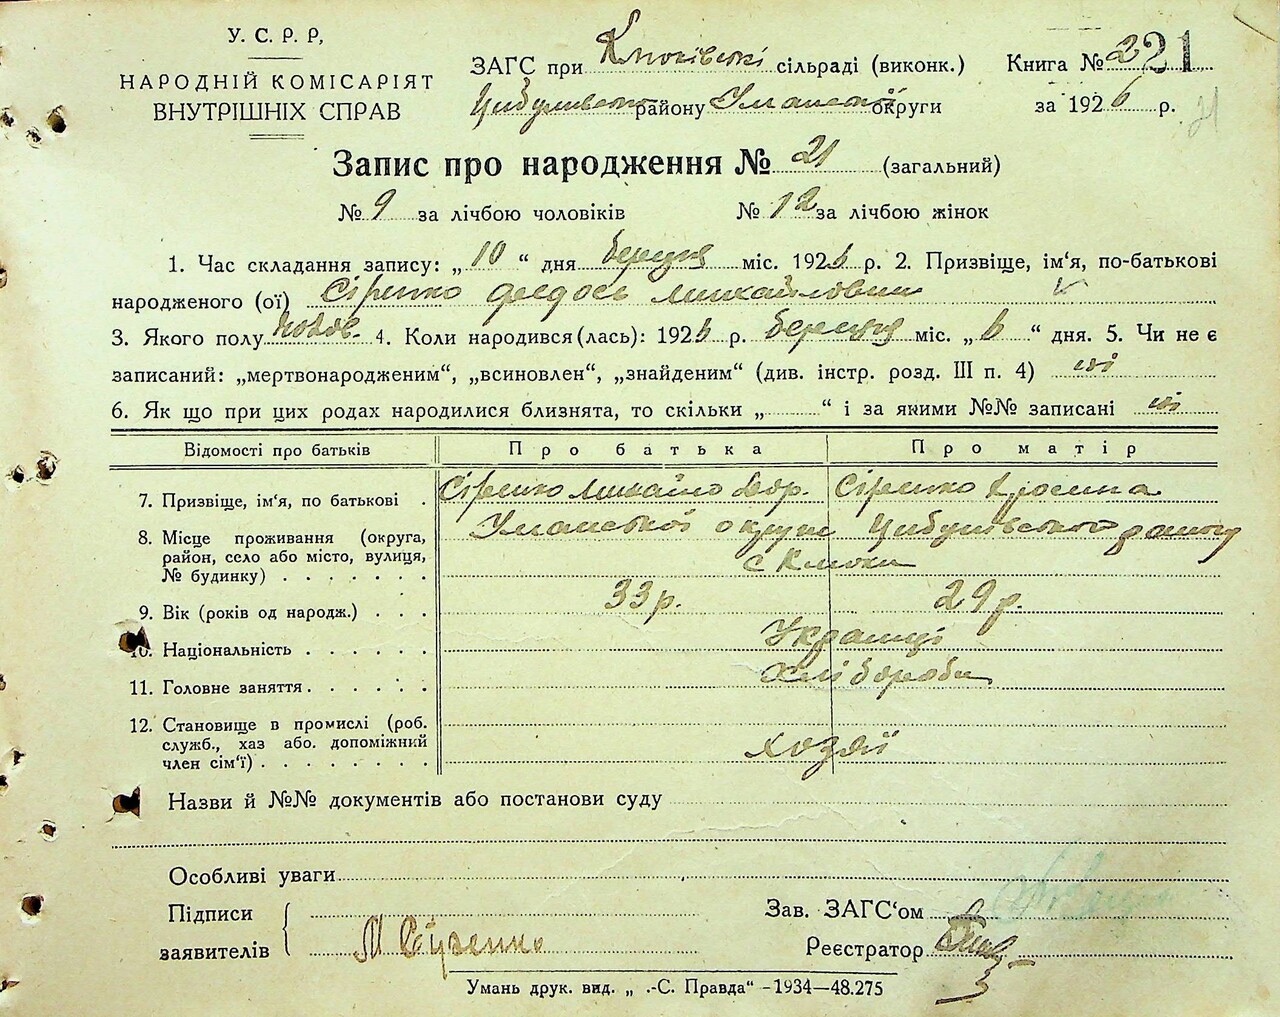 У. С. Р. Р,
НАРОДНІЙ КОМІСАРІЯТ
ВНУТРІШНІХ СПРАВ
ЗАГС при сільраді (виконк.)
району Уманської округи
Книга № 2
221
за 1926 р.
21
Запис про народження № 21 (загальний)
№ 9 за лічбою чоловіків № 12 за лічбою жінок
1. Час складання запису: „ 10 “ дня березня міс. 1926 р. 2. Призвіще, ім‘я, по-батькові
народженого (ої) Сіренко Федось Михайлович
3. Якого полу чолов. 4. Коли народився(лась): 1926 р. березня міс. „ 6 “ дня. 5. Чи не є
записаний: „мертвонародженим“, „всиновлен“, „знайденим“ (див. інстр. розд. III п. 4) ні
6. Як що при цих родах народилися близнята, то скільки „ “ і за якими №№ записані ні
Відомості про батьків Про батька Про матір
7. Призвіще, ім‘я, по батькові . Сіренко Михайло Сіренко
8. Місце проживання (округа,
район, село або місто, вулиця,
№ будинку) . . . . . . .
Уманської округи Цибулівського району
с Клюки
9. Вік (років од народж.) . . . 33 р. 29 р.
10. Національність . . . . . . Українці
11. Головне заняття . . . . . . Хлібороби
12. Становище в промислі (роб.
служб., хаз або. допоміжний
член сім‘ї) . . . . . . . . хозяї
Назви й №№ документів або постанови суду
Особливі уваги
Підписи
заявителів
М
Зав. ЗАГС‘ом
Реєстратор
Умань друк. вид. „ .-С. Правда“ -1934—48.275